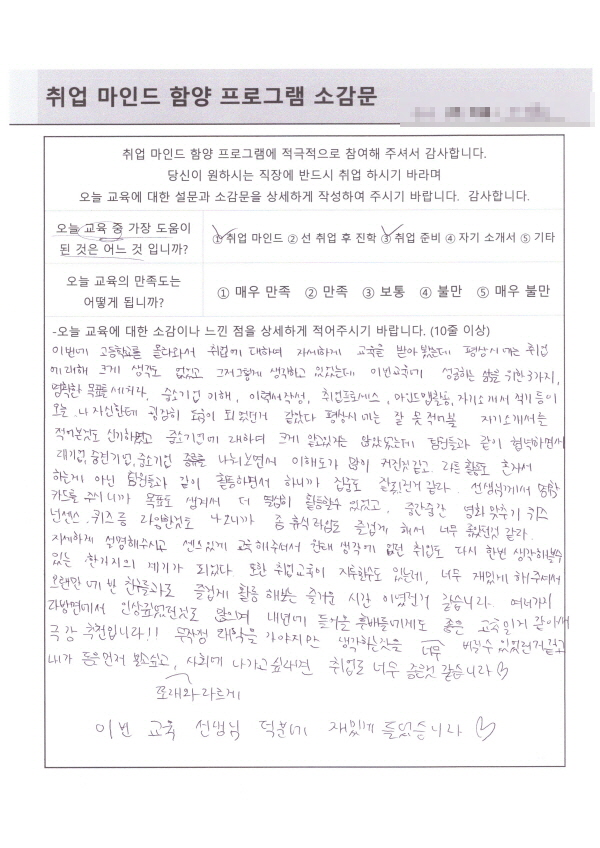 취업 마인드 함양 프로그램 소감문
취업 마인드 함양 프로그램에 적극적으로 참여해 주셔서 감사합니다.
당신이 원하시는 직장에 반드시 취업 하시기 바라며
오늘 교육에 대한 설문과 소감문을 상세하게 작성하여 주시기 바랍니다. 감사합니다.
오늘 교육 중 가장 도움이
된 것은 어느 것 입니까?
① 취업 마인드 ② 선 취업 후 진학 ③ 취업 준비 ④ 자기 소개서 ⑤ 기타
오늘 교육의 만족도는
어떻게 됩니까?
① 매우 만족 ② 만족 ③ 보통 ④ 불만 ⑤ 매우 불만
-오늘 교육에 대한 소감이나 느낀 점을 상세하게 적어주시기 바랍니다. (10줄 이상)
이번에 고등학교를 올라와서 취업에 대하여 자세하게 교육을 받아 봤는데 평상시에는 취업
에 대해 크게 생각도 없었고 그저그렇게 생각하고 있었는데 이번교육에 성공하는 삶을 위한 3가지,
명확한 목표를 세워라, 중소기업 이해, 이력서작성, 취업프로세스, 마인드맵활용, 자기소개서 쓰기 등이
오늘 나 자신한테 굉장히 도움이 되었던거 같았다 평상시에는 잘 못 적어볼 자기소개서를
적어본것도 신기하였고 중소기업에 대하여 크게 알고있지는 않았었는데 팀원들과 같이 협력하면서
대기업, 중견기업, 중소기업 종류를 나눠보면서 이해도가 많이 커진것같고. 다른 활동도 혼자서
하는게 아닌 팀원들과 같이 활동하면서 하니까 집중도 잘된것 같다. 선생님께서
카드를 주시니까 목표도 생겨서 더 열심히 활동할수 있었고, 중간중간 영화 맞추기 퀴즈
넌센스. 퀴즈 등 다양한것도 나오니까 좀 휴식 타임도 즐겁게 해서 너무 좋았던것 같다.
자세하게 설명해주시고 센스있게 교육해주셔서 한테 생각에 없던 취업도 다시 한번 생각해볼수
있는 한가지의 계기가 되었다. 또한 취업교육이 지루할수도 있는데, 너무 재밌게 해주셔서
오랜만에 반 친구들과로 즐겁게 활동 해보는 즐거운 시간 이였던거 같습니다. 여러가지
다방면에서 인상깊었던것로 많으며 내년에 들어올 후배들에게도 좋은 교육일거 같아서
극강 추천입니다!! 무작정 대학을 가야지만 생각하는것을 너무 비울수 있었던거같고
내가 돈을먼저 벌고싶고, 사회에 나가고싶다면 취업로 너무 좋은것 같습니다 ♡
또래와 다르게
이번 교육 선생님 덕분에 재밌게 들었습니다 ♡